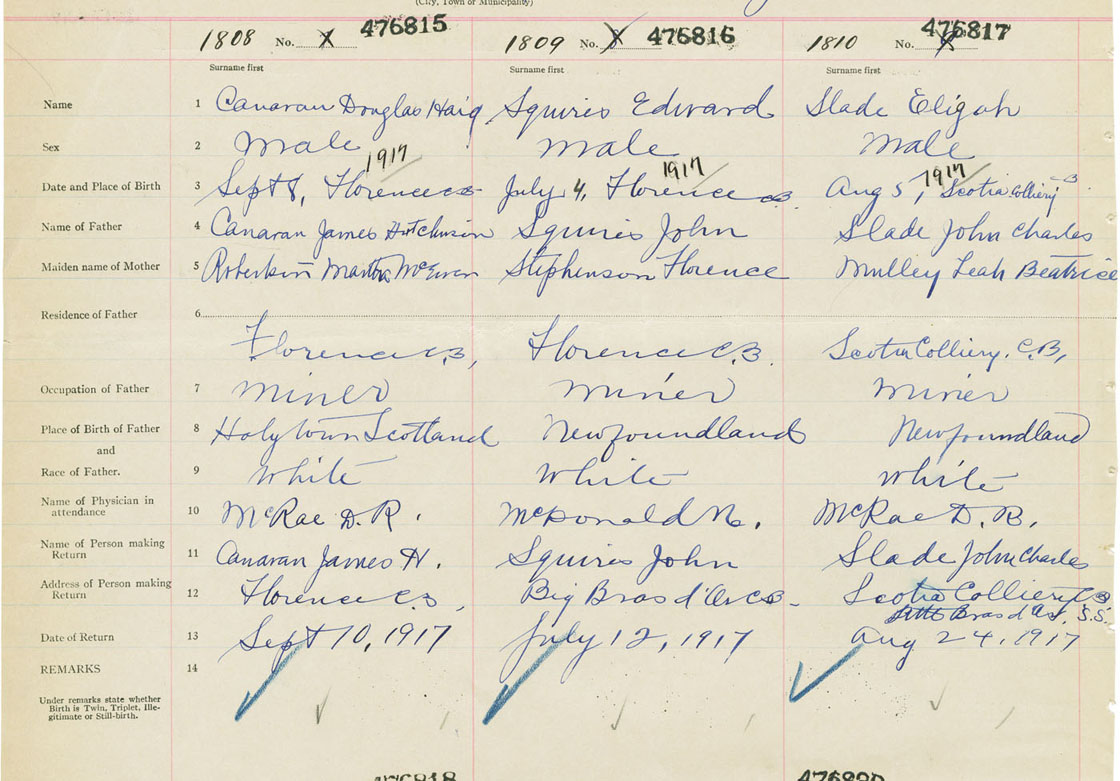 (City, Town or Municipality)
1808 No. X 476815 1809 No. X 476816 1810 No. X 476817
Surname first Surname first Surname first
Name 1 Canavan Douglas Haig Squires Edward Slade Eligah
Sex 2 Male Male Male
1917 1917 1917
Date and Place of Birth 3 Sept 8, Florence CB July 4, Florence CB. Aug 5, Scotia Colliery CB
Name of Father 4 Canavan James Hutchinson Squires John Slade John Charles
Maiden name of Mother 5 Robertson Martha McEwen Stephenson Florence Mulley Leah Beatrice
Residence of Father 6
Florence C.B, Florence C.B. Scotia Colliery. C.B,
Occupation of Father 7 Miner Miner Miner
Place of Birth of Father 8 Holytown Scotland Newfoundland Newfoundland
and
Race of Father. 9 White White White
Name of Physician in
attendance 10 McRae D. R. McDonald N. McRae D. R.
Name of Person making
Return 11 Canavan James H. Squires John Slade John Charles
Address of Person making
Return 12 Florence C.B, Big Bras d'Or CB. Scotia Colliery CB
Little Bras d'Or, S.S.
Date of Return 13 Sept 10, 1917 July 12, 1917 Aug 24, 1917
REMARKS 14
Under remarks state whether
Birth is Twin, Triplet, Ille-
gitimate or Still-birth.